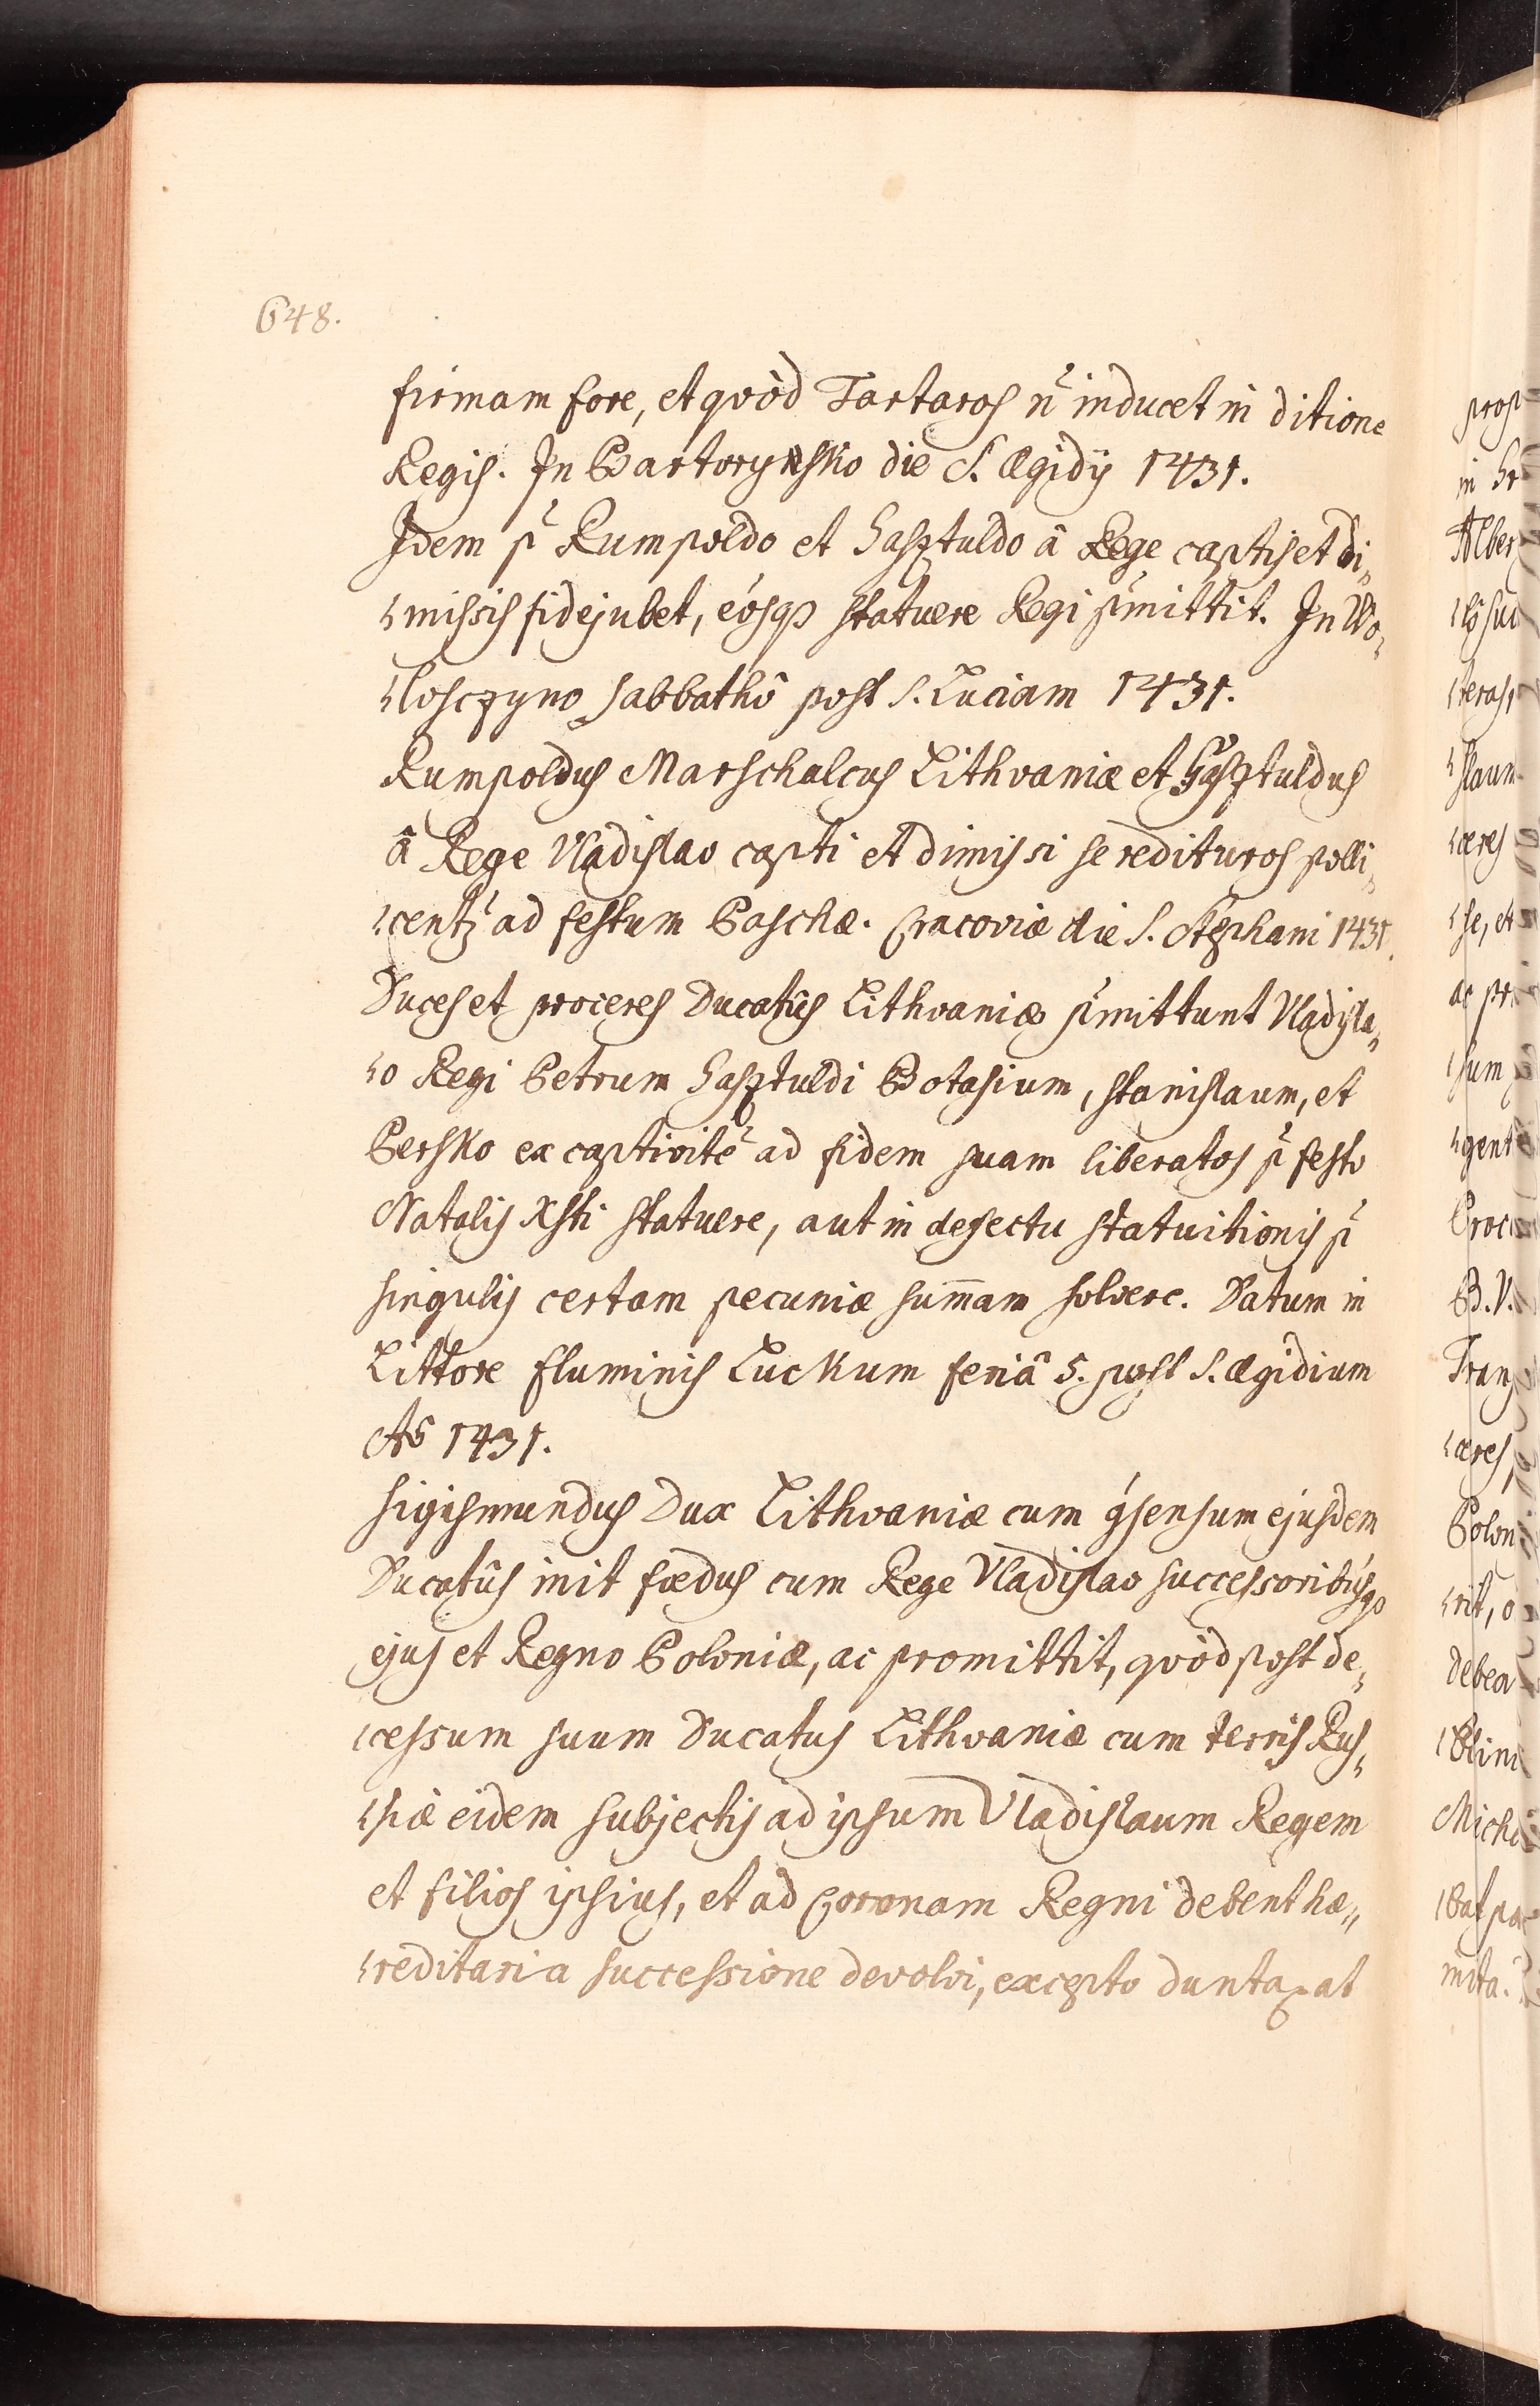 648.
firmam fore, et qvòd Tartaros n̄ inducet in ditione
Regis. In Bartorynsko die S. Ægidÿ 1431.
Idem p̄ Rumpoldo et Gasztuldo â Rege captis et di„
„missis fidejubet, eósqȝ statuere Regi p̄mittit. In Wo„
„losczyno sabbathô post S. Luciam 1431.
Rumpoldus Marschalcus Lithvaniæ et Gasztuldus
â Rege Vladislao capti et dimissi se redituros polli„
„centz̄ ad festum Paschæ. Cracoviæ die S. Stephani 1431.
Duces et proceres Ducatûs Lithvaniæ p̄mittunt Vladisla„
„o Regi Petrum Gasztuldi Botasium, Stanislaum, et
Persko ex captivitē ad fidem suam liberatos p̄ festo
Natalis Xsti statuere, aut in defectu statuitionis p̄
singulis certam pecuniæ sum̄am solvere. Datum in
Littore fluminis Luckum feriâ 5. post S. Ægidium
Aō 1431.
Sigismundus Dux Lithvaniæ cum ꝯsensum ejusdem
Ducatûs init fœdus cum Rege Vladislao successoribúsqȝ
ejus et Regno Poloniæ, ac promittit, qvòd post de„
„cessum suum Ducatus Lithvaniæ cum terris Rus„
„siæ eidem subjectis ad ipsum Vladislaum Regem
et filios ipsius, et ad Coronam Regni debent hæ„
„reditaria successione devolvi, excepto duntaxat
prosp
in Gr
Alber
„slaum
„ceres
„se, et
ac pr
„sum
„gent
Proc
B. V.
Tran
„ceres,
Polon
„rit, o
debea
Mich